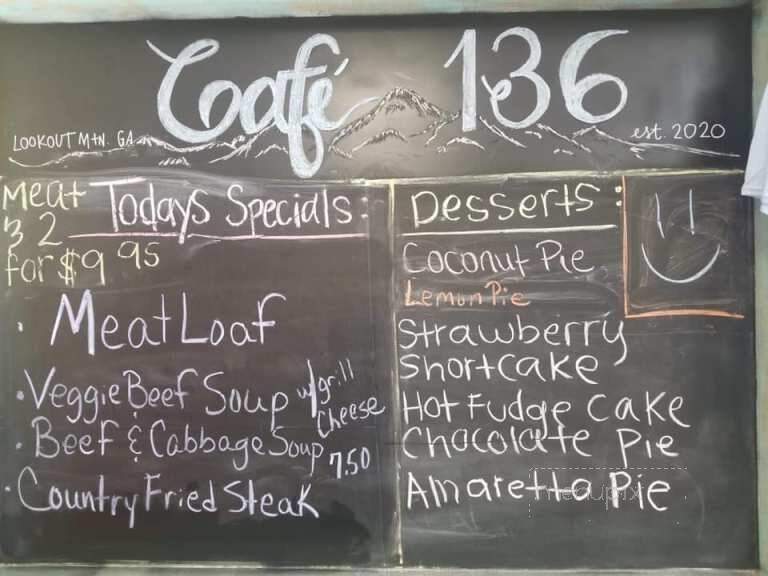 Café 136
LOOKOUT MTN. GA
est. 2020
Meat
& 2
for $9 95
Todays Specials:
• Meat Loaf
• Veggie Beef Soup w/grill
Cheese
• Beef & Cabbage Soup
7.50
• Country Fried Steak
Desserts:
Coconut Pie
Lemon Pie
Strawberry
Shortcake
Hot Fudge Cake
Chocolate Pie
Amaretto Pie
menupix